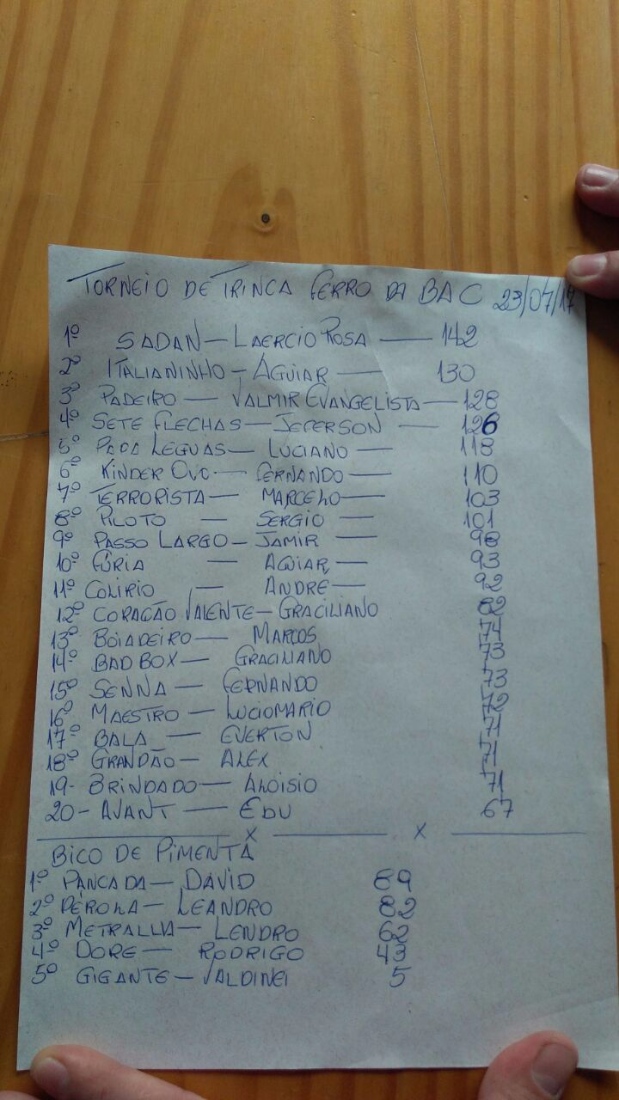 TORNEIO DE TRINCA FERRO DA BAC 23/07/17
1º SADAN — LAERCIO ROSA — 142
2º ITALIANINHO - AGUIAR — 130
3º PADEIRO — VALMIR EVANGELISTA — 128
4º SETE FLECHAS — JEFERSON — 126
5º PAPA LEGUAS — LUCIANO — 118
6º KINDER OVO — FERNANDO — 110
7º TERRORISTA — MARCELO — 103
8º PILOTO — SERGIO — 101
9º PASSO LARGO - JAMIR — 98
10º FÚRIA — AGUIAR — 93
11º COLIRIO — ANDRE — 92
12º CORAÇÃO VALENTE - GRACILIANO 82
13º BOIADEIRO — MARCOS 74
14º BAD BOX — GRACILIANO 73
15º SENNA — FERNANDO 73
16º MAESTRO — LUCIOMARIO 72
17º BALA — EVERTON 71
18º GRANDÃO — ALEX 71
19 - BRINDADO — ALOISIO 71
20 - AVANT — EDU 67
x x
BICO DE PIMENTA
1º PANCADA — DAVID 89
2º PÉROLA — LEANDRO 82
3º METRALLIA — LENDRO 62
4º DORE — RODRIGO 43
5º GIGANTE — VALDINEI 5